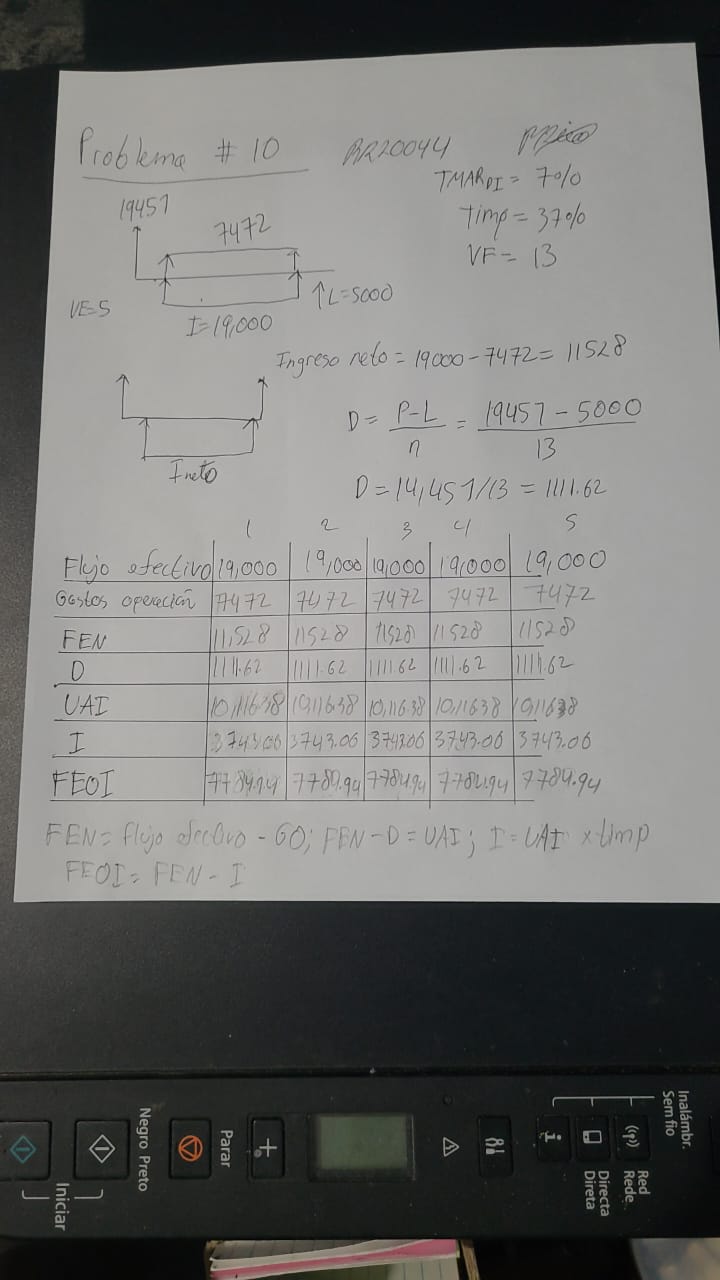 Problema # 10
RR20044
TMARDI = 7%
timp = 37%
VF = 13
19457
7472
VE=5
I=19,000
↑L=5000
Ingreso neto = 19000 - 7472 = 11528
I neto
D = P-L / n = 19457 - 5000 / 13
D = 14,457/13 = 1111.62
1 2 3 4 5
Flujo efectivo 19,000 19,000 19,000 19,000 19,000
Gastos operación 7472 7472 7472 7472 7472
FEN 11,528 11528 11528 11528 11528
D 1111.62 1111.62 1111.62 1111.62 1111.62
UAI 10,116.38 10,116.38 10,116.38 10,116.38 10,116.38
I 3743.06 3743.06 3743.06 3743.06 3743.06
FEOI 7784.94 7784.94 7784.94 7784.94 7784.94
FEN = flujo efectivo - GO; FEN - D = UAI; I = UAI x timp
FEOI = FEN - I
Inalámbr.
Sem fio
Red
Rede
Directa
Direta
Parar
Negro Preto
Iniciar